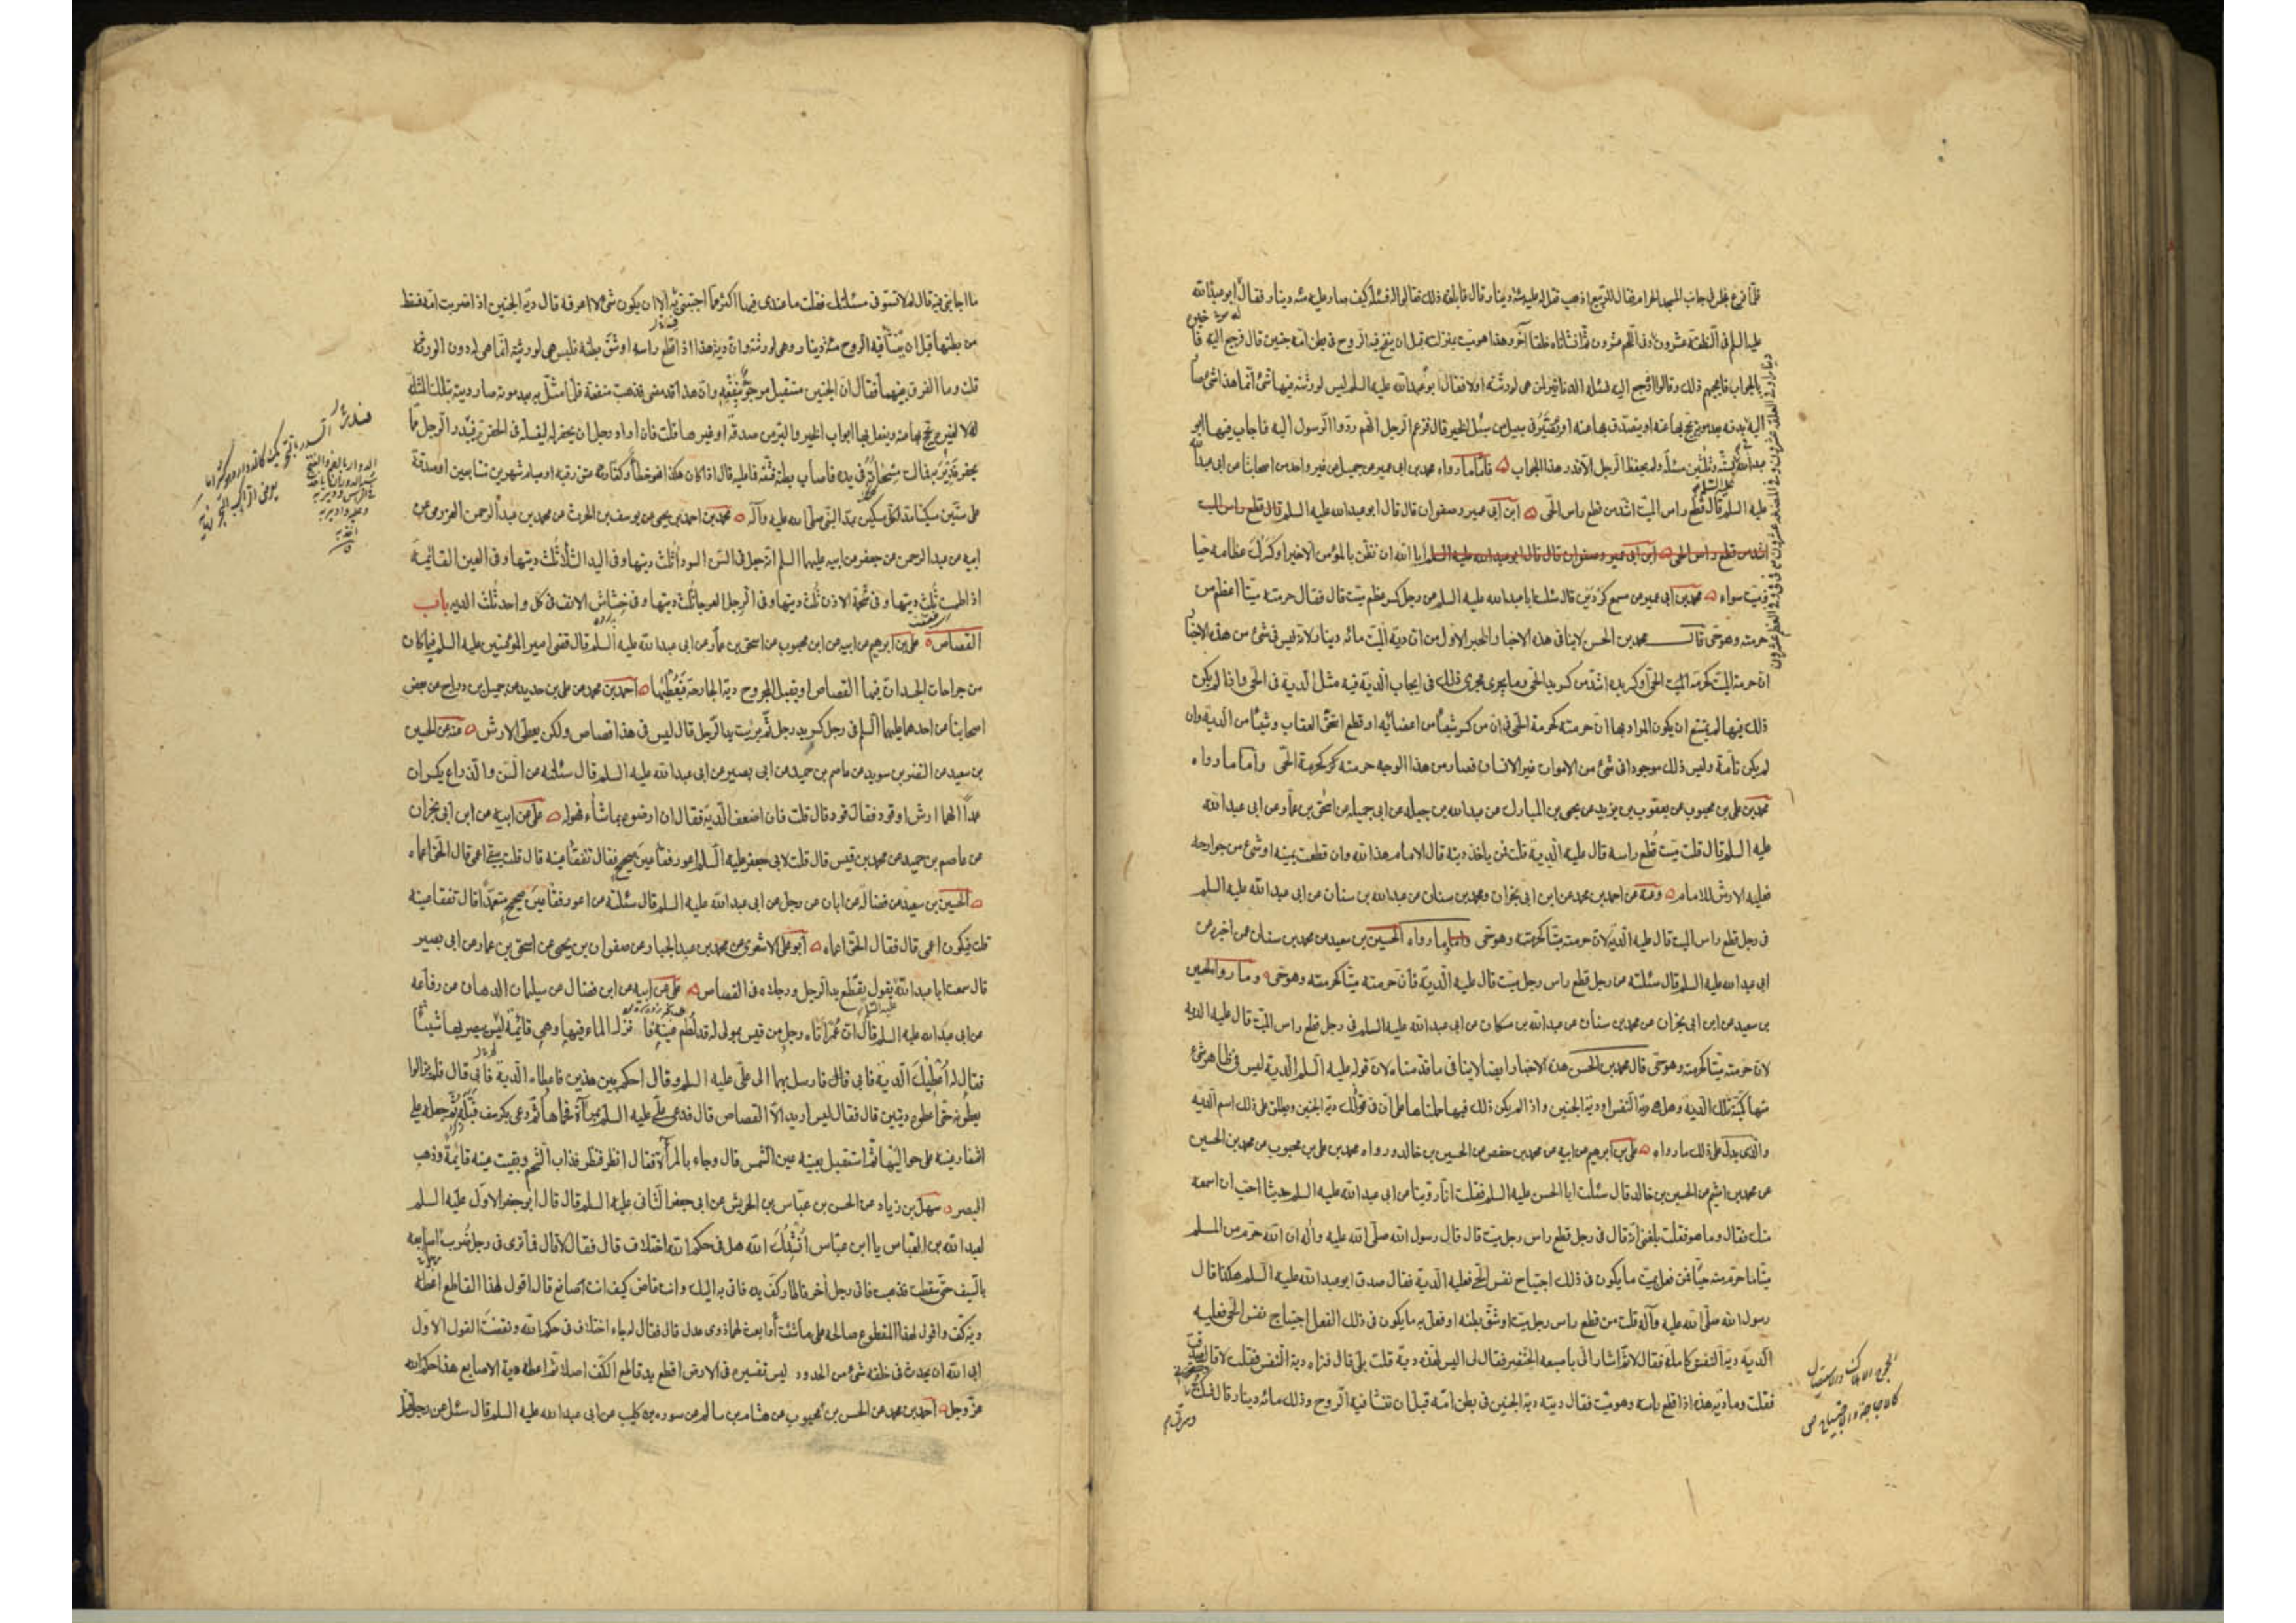 فلما فرغ جلس في جانب المسجد الحرام فقال للربيع اذهب فقل له عليه مائة دينار قال فابلغه ذلك فقالوا له فسئله كيف صار عليه مئة دينار فقال ابو عبد الله
عليه السلم في النطفة عشرون وفي العظم عشرون ثم انشأناه خلقا آخر وهذا هو ميت بمنزلته قبل ان ينفخ فيه الروح في بطن امه جنين قال فرجع اليه فا
بالجواب فاعجبهم ذلك وقالوا ارجع اليه فسئله الدنانير لمن هي لورثته اولا فقال ابو عبد الله عليه السلم ليس لورثته فيها شئ انما هذا شئ صا
اليه في بدنه بعد موته يحج بها عنه او يتصدق بها عنه او تصير في سبيل من سبل الخير قال فزعم الرجل انهم ردوا الرسول اليه فاجاب فيها ابو
عبد الله بستة وثلثين مسئلة ولم يحفظ الرجل الا قدر هذا الجواب فاما ما رواه محمد بن ابي عمير عن جميل عن غير واحد من اصحابنا عن ابي عبد الله
عليه السلم قال قطع راس الميت اشد من قطع راس الحي ابن ابي عمير وصفوان قال قال ابو عبد الله عليه السلم قال قطع راس الميت
اشد من قطع راس الحي ابن ابي عمير وصفوان قال قال ابو عبد الله عليه السلم ابا الله ان نظن بالمؤمن الا خيرا وكسرك عظامه حيا
وميت سواء محمد بن ابي عمير عن مسمع كردين قال سئلت ابا عبد الله عليه السلم عن رجل كسر عظم ميت قال فقال حرمته ميتا اعظم من
حرمته وهو حي قال محمد بن الحسن لا ينافي هذه الاخبار والخبر الاول من ان دية الميت مائة دينار لانه ليس في شئ من هذه الاخبار
ان حرمة الميت كحرمة الحي او كسر يده اشد من كسر يد الحي وما يجري مجرى ذلك في ايجاب الدية فيه مثل الدية في الحي واذا لم يكن
ذلك فيها لم يمتنع ان يكون المراد بها ان حرمته كحرمة الحي في ان من كسر شيئا من اعضائه او قطع استحق العقاب وشيئا من الدية وان
لم يكن تامة وليس ذلك موجودا في شئ من الاموات غير الانسان فصار من هذا الوجه حرمته كحرمة الحي واما ما رواه
محمد بن علي بن محبوب عن يعقوب بن يزيد عن يحيى بن المبارك عن عبد الله بن جبلة عن ابي جميلة عن اسحق بن عمار عن ابي عبد الله
عليه السلم قال قلت ميت قطع راسه قال عليه الدية قلت فمن ياخذ ديته قال الامام هذا لله وان قطعت يمينه او شئ من جوارحه
فعليه الارش للامام وعنه عن احمد بن محمد عن ابن ابي نجران ومحمد بن سنان عن عبد الله بن سنان عن ابي عبد الله عليه السلم
في رجل قطع راس الميت قال عليه الدية لان حرمته ميتا كحرمته وهو حي واما ما رواه الحسين بن سعيد عن محمد بن سنان عمن اخبره عن
ابي عبد الله عليه السلم قال سئلته عن رجل قطع راس رجل ميت قال عليه الدية فان حرمته ميتا كحرمته وهو حي وما رواه الحسين
بن سعيد عن ابن ابي نجران عن محمد بن سنان عن عبد الله بن مسكان عن ابي عبد الله عليه السلم في رجل قطع راس الميت قال عليه الدية
لان حرمته ميتا كحرمته وهو حي قال محمد بن الحسن هذه الاخبار ايضا لا ينافي ما قدمناه لان قوله عليه السلم الدية ليس في ظاهر شئ
منها كمية تلك الدية وهل هو دية النفس او دية الجنين واذا لم يكن ذلك فيها حملناها على ان دية الجنين ويطلق على ذلك اسم الدية
والذي يدل على ذلك ما رواه علي بن ابرهيم عن ابيه عن محمد بن حفص عن الحسين بن خالد ورواه محمد بن علي بن محبوب عن محمد بن الحسين
عن محمد بن اشيم عن الحسين بن خالد قال سئلت ابا الحسن عليه السلم فقلت انا روينا عن ابي عبد الله عليه السلم حديثا احب ان اسمعه
منك فقال وما هو فقلت بلغني انه قال في رجل قطع راس رجل ميت قال قال رسول الله صلى الله عليه وآله ان الله حرم من المسلم
ميتا ما حرم منه حيا فمن فعل بميت ما يكون في ذلك اجتياح نفس الحي فعليه الدية فقال صدق ابو عبد الله عليه السلم هكذا قال
رسول الله صلى الله عليه وآله قلت من قطع راس رجل ميت او شق بطنه او فعل به ما يكون في ذلك الفعل اجتياح نفس الحي فعليه
الدية دية النفس كاملة فقال لا ثم اشار الي باصبعه الخنصر فقال لي اليس لهذه دية قلت بلى قال فتراه دية النفس فقلت لا قال صدقت
فقلت وما دية هذه اذا قطع راسه وهو ميت فقال ديته دية الجنين في بطن امه قبل ان تنشا فيه الروح وذلك مائة دينار قال فسكت
ما اجابني فيه قال لم لا تستوفي مسئلتك فقلت ما عندي فيها اكثر مما اجبتني به الا ان يكون شئ لا اعرفه قال دية الجنين اذا ضربت امه فسقط
من بطنها قبل ان ينشأ فيه الروح مئة دينار وهي لورثته وان دية هذا اذا قطع راسه او شق بطنه فليس هي لورثته انما هي له دون الورثة
قلت وما الفرق بينهما فقال ان الجنين مستقبل مرجو نفعه وان هذا قد مضى فذهبت منفعته فلما مثل به بعد موته صار ديته بتلك المثلة
له لا لغيره يحج بها عنه ويفعل بها ابواب الخير والبر من صدقة او غير ها قلت فان اراد رجل ان يحفر له ليغسله في الحفرة فيدر الرجل مما
يحفر فدير به فمالت مسحاته في يده فاصاب بطنه فشقه فما عليه قال اذا كان هكذا فهو خطأ وكفارته عتق رقبة او صيام شهرين متتابعين او صدقة
على ستين مسكينا مد لكل مسكين بمد النبي صلى الله عليه وآله محمد بن احمد بن يحيى عن يوسف بن الحرث عن محمد بن عبد الرحمن العزرمي عن
ابيه عن عبد الرحمن عن جعفر عن ابيه عليهما السلم انه جعل في السن السوداء ثلث ديتها وفي اليد الشلاء ثلث ديتها وفي العين القائمة
اذا طمست ثلث ديتها وفي شحمة الاذن ثلث ديتها وفي الرجل العرجاء ثلث ديتها وفي خشاش الانف في كل واحد ثلث الدية باب
القصاص علي بن ابرهيم عن ابيه عن ابن محبوب عن اسحق بن عمار عن ابي عبد الله عليه السلم قال قضى امير المؤمنين عليه السلم فيما كان
من جراحات الجسد ان فيها القصاص او يقبل المجروح دية الجارحة فيعطيها احمد بن محمد عن علي بن حديد عن جميل بن دراج عن بعض
اصحابنا عن احدهما عليهما السلم في رجل كسر يد رجل ثم برئت يد الرجل قال ليس في هذا قصاص ولكن يعطى الارش عنه عن الحسين
بن سعيد عن النضر بن سويد عن عاصم بن حميد عن ابي بصير عن ابي عبد الله عليه السلم قال سئلته عن السن والذراع يكسران
عمدا الهما ارش او قود فقال قود قال قلت فان اضعف الدية فقال ان ارضوه بما شاء فهو له علي عن ابيه عن ابن ابي نجران
عن عاصم بن حميد عن محمد بن قيس قال قلت لابي جعفر عليه السلم اعور فقأ عين صحيح فقال تفقأ عينه قال قلت يبقى اعمى قال الحق اعماه
الحسين بن سعيد عن فضالة عن ابان عن رجل عن ابي عبد الله عليه السلم قال سئلته عن اعور فقأ عين صحيح متعمدا قال تفقا عينه
قلت فيكون اعمى قال فقال الحق اعماه ابو علي الاشعري عن محمد بن عبد الجبار عن صفوان بن يحيى عن اسحق بن عمار عن ابي بصير
قال سمعت ابا عبد الله يقول يقطع يد الرجل ورجلاه في القصاص علي عن ابيه عن ابن فضال عن سليمان الدهان عن رفاعه
عن ابي عبد الله عليه السلم قال ان عمر اتاه رجل من قيس بمولى له قد لطم عينه فا نزل الماء فيها وهي قائمة ليس يبصر بها شيئا
فقال له اعطيك الدية فابى قال فارسل بهما الى علي عليه السلم وقال احكم بين هذين فاعطاه الدية فابى قال فلم يزالوا
يعطونه حتى اعطوه ديتين قال فقال ليس اريد الا القصاص قال فدعى علي عليه السلم بمرآة فحماها ثم دعى بكرسف فبله ثم جعله على
اشفار عينه على حواليها ثم استقبل بعينه عين الشمس قال وجاء بالمرآة فقال انظر فنظر فذاب الشحم وبقيت عينه قائمة وذهب
البصر سهل بن زياد عن الحسن بن عباس بن الحريش عن ابي جعفر الثاني عليه السلم قال قال ابو جعفر الاول عليه السلم
لعبد الله بن العباس يا ابن عباس انشدك الله هل في حكم الله اختلاف قال فقال لا قال فما ترى في رجل ضرب اصابعه
بالسيف حتى سقطت فذهب فاتى رجل آخر فاطار كف يده فاتي به اليك وانت قاض كيف انت صانع قال اقول لهذا القاطع اعطه
دية كف واقول لهذا المقطوع صالحه على ما شئت او ابعث لهما ذوي عدل قال فقال له جاء اختلاف في حكم الله ونقضت القول الاول
ابى الله ان يحدث في خلقه شئ من الحدود ليس تفسيره في الارض اقطع يد قاطع الكف اصلا ثم اعطه دية الاصابع هذا حكم الله
عز وجل احمد بن محمد عن الحسن بن محبوب عن هشام بن سالم عن سورة بن كليب عن ابي عبد الله عليه السلم قال سئل عن رجل قتل